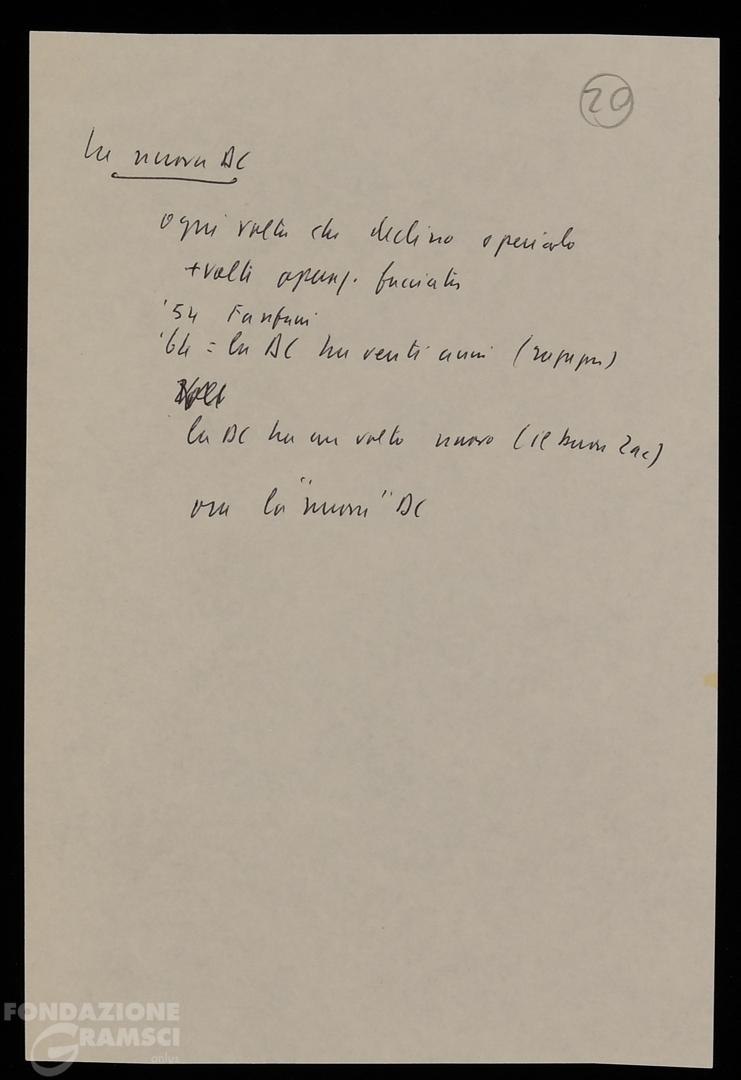 20
La nuova DC
ogni volta che declino o pericolo
'54 Fanfani
'64 = la DC ha venti anni (ragazza)
la DC ha un volto nuovo (il buon Zac)
ora la "nuova" DC
FONDAZIONE
GRAMSCI
onlus